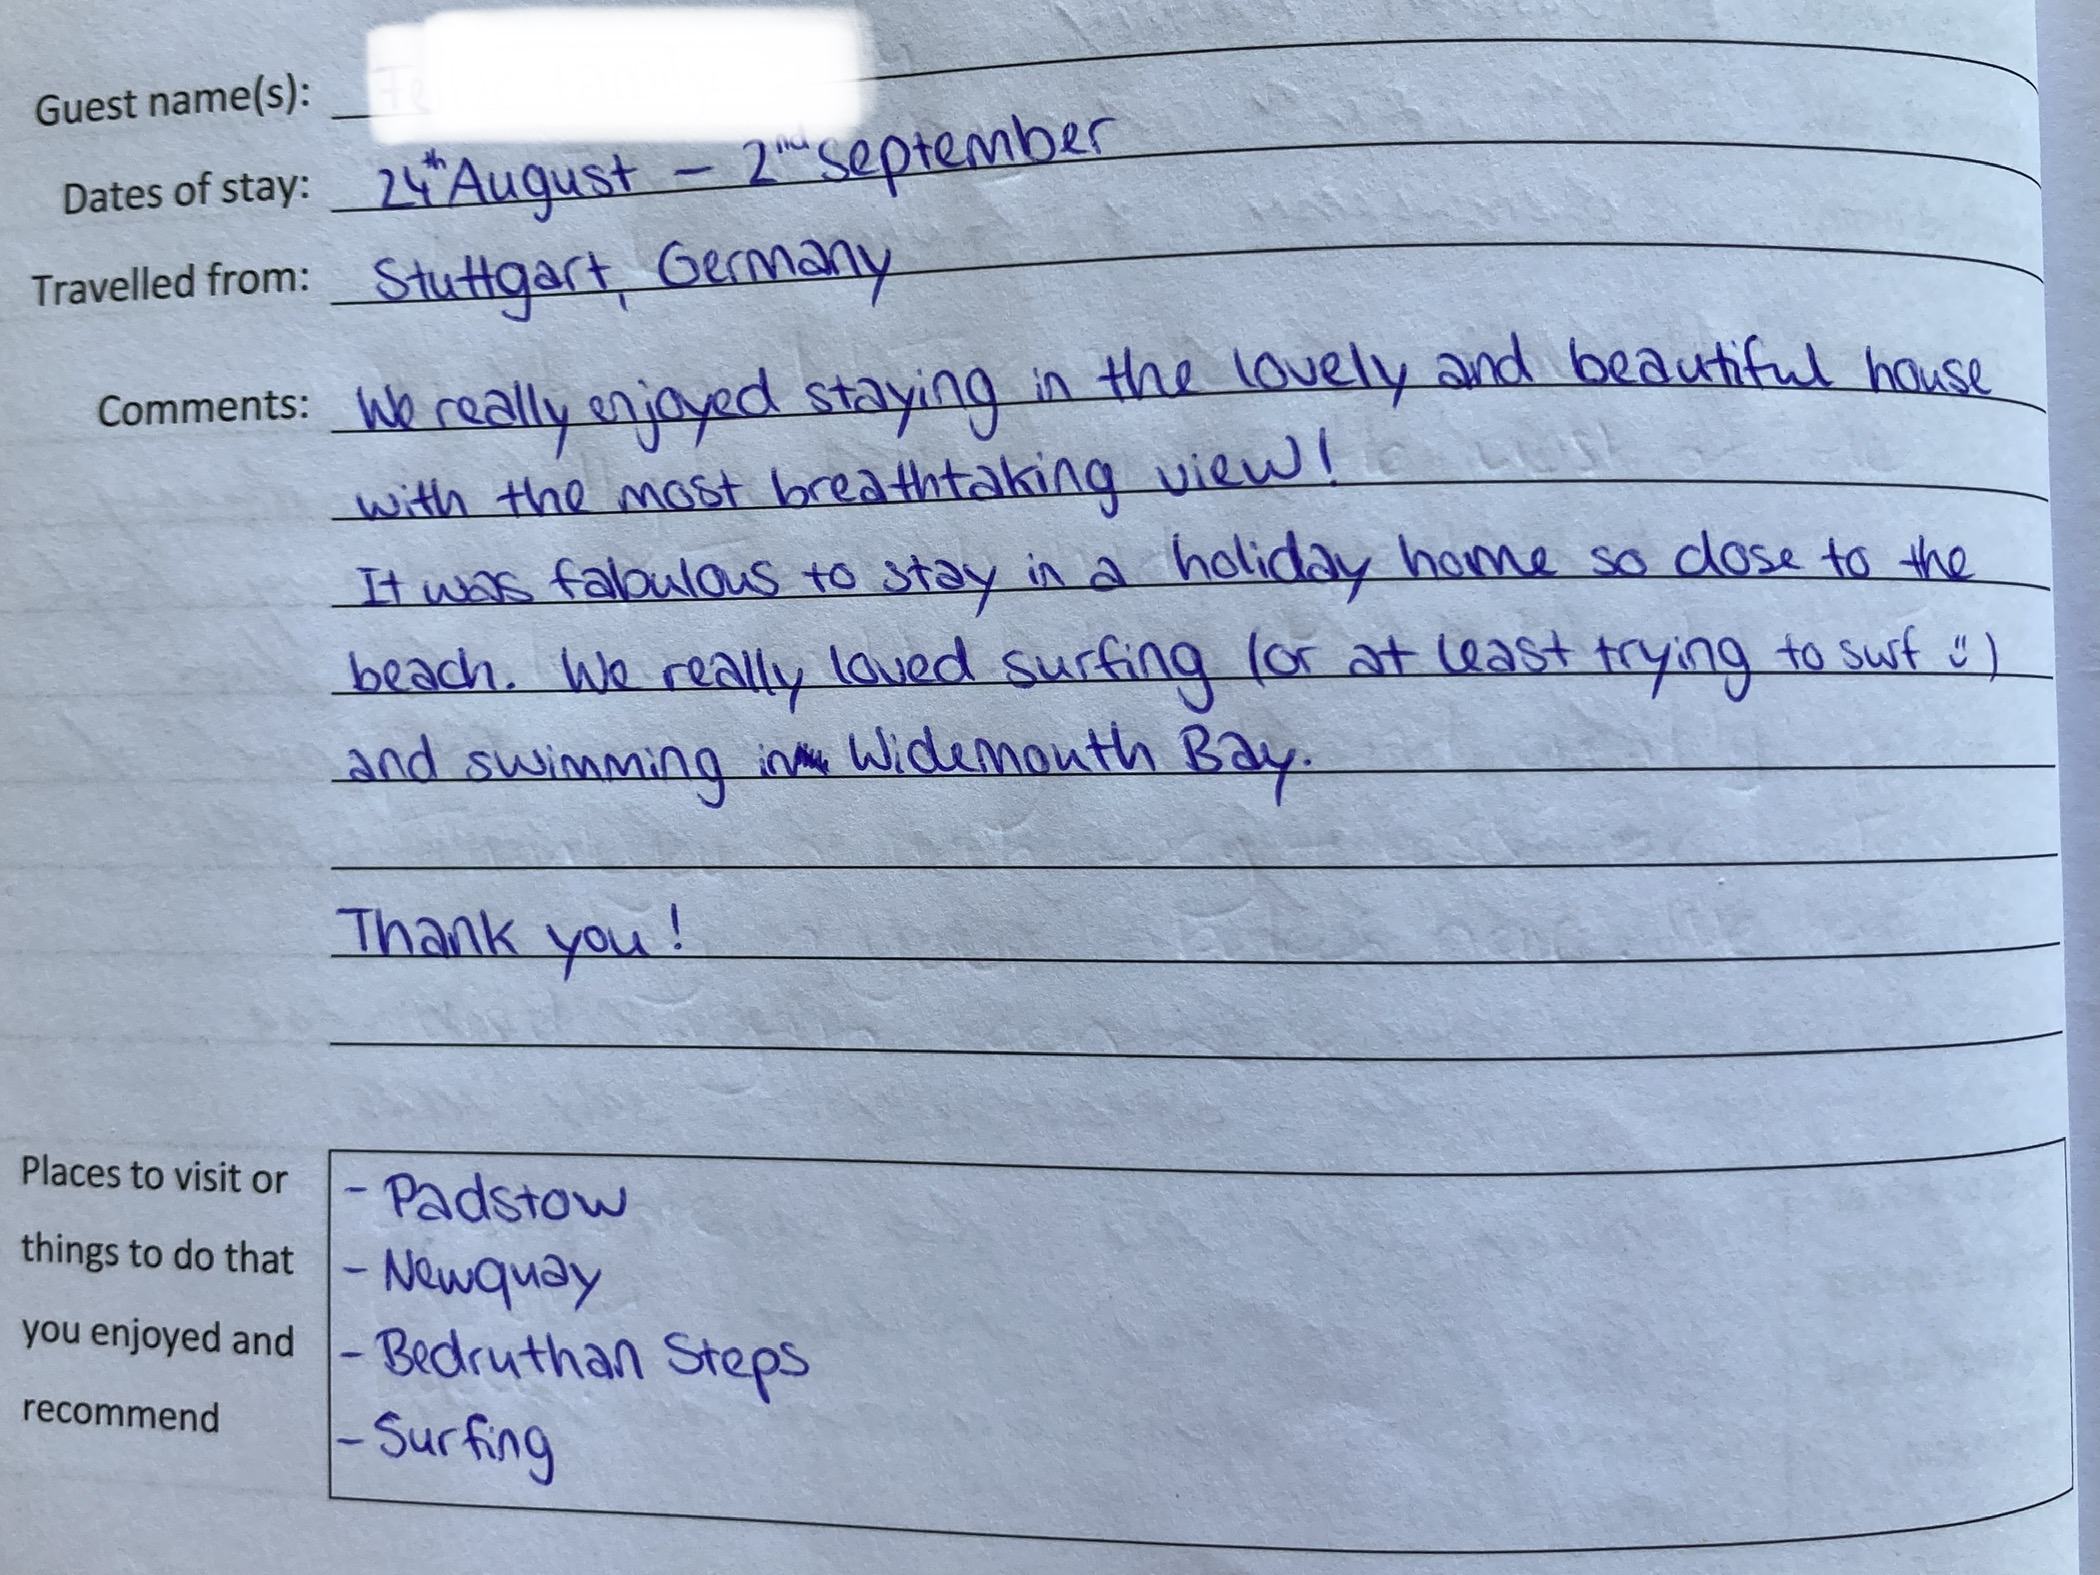 Guest name(s):
Dates of stay: 24th August – 2nd September
Travelled from: Stuttgart, Germany
Comments: We really enjoyed staying in the lovely and beautiful house
with the most breathtaking view!
It was fabulous to stay in a holiday home so close to the
beach. We really loved surfing (or at least trying to surf ü)
and swimming in Widemouth Bay.
Thank you!
Places to visit or
things to do that
you enjoyed and
recommend
- Padstow
- Newquay
- Bedruthan Steps
- Surfing